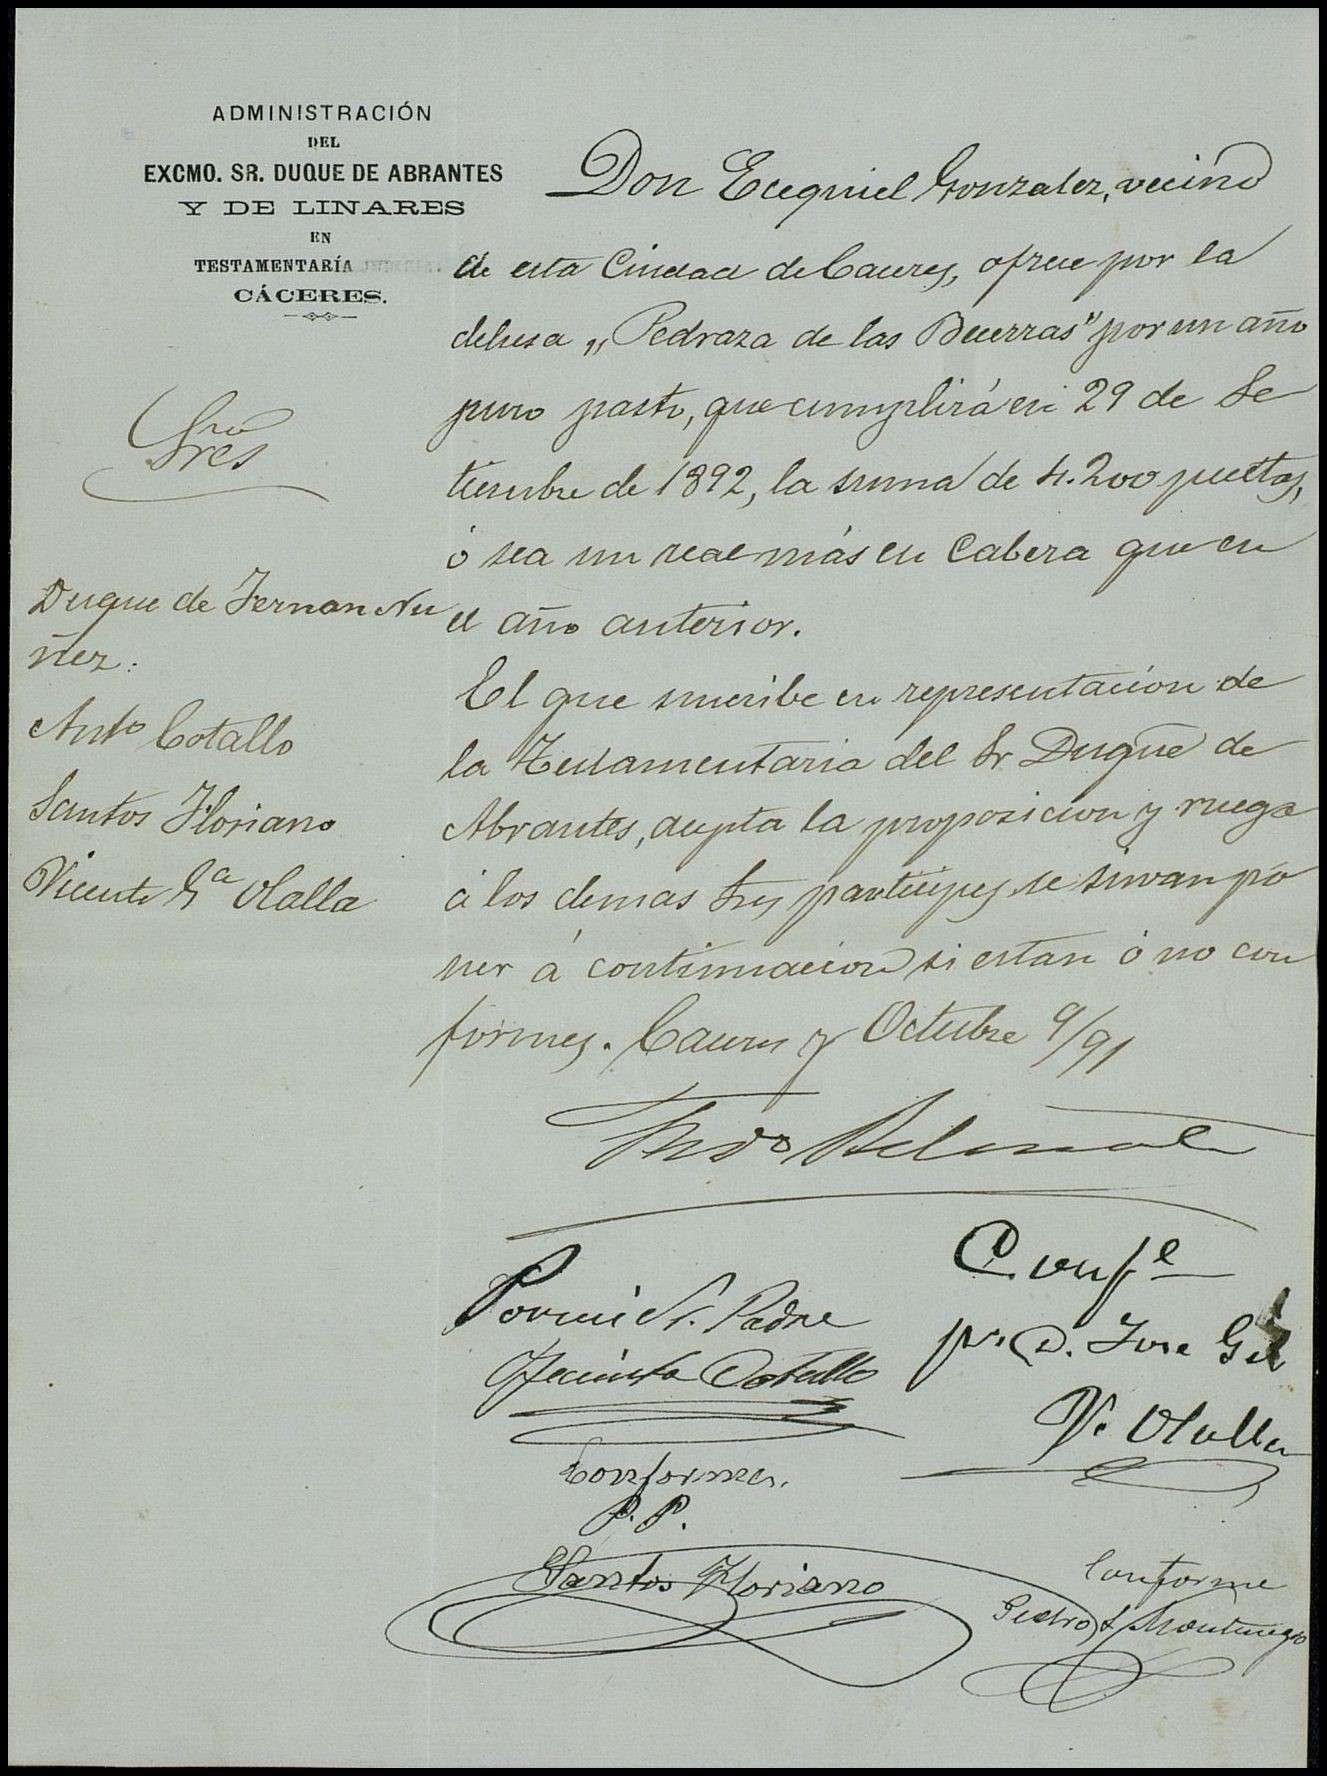 ADMINISTRACIÓN
DEL
EXCMO. SR. DUQUE DE ABRANTES
Y DE LINARES
EN
TESTAMENTARÍA
CÁCERES.
Don Ecequiel Gonzalez, vecino
de esta Ciudad de Caceres, ofrece por la
dehesa „Pedraza de las Becerras" por un año
puro pasto, que cumplirá en 29 de Se
tiembre de 1892, la suma de 4.200 pesetas,
ó sea un real más en Cabeza que en
el año anterior.
El que suscribe en representacion de
la Testamentaria del Sr Duque de
Abrantes, acepta la proposicion y ruega
á los demas Sres participes se sirvan po
ner á continuacion si estan ó no con
formes. Caceres y Octubre 9/91
Sres
Duque de Fernan Nu
ñez.
Anto Cotallo
Santos Floriano
Vicente Ga Olalla
Por mi Sr. Padre
Jacinto Cotallo
Confe
pr. D. Jose Gil
V. Olalla
Conforme.
P. P.
Santos Floriano
Conforme
Pedro Montenegro